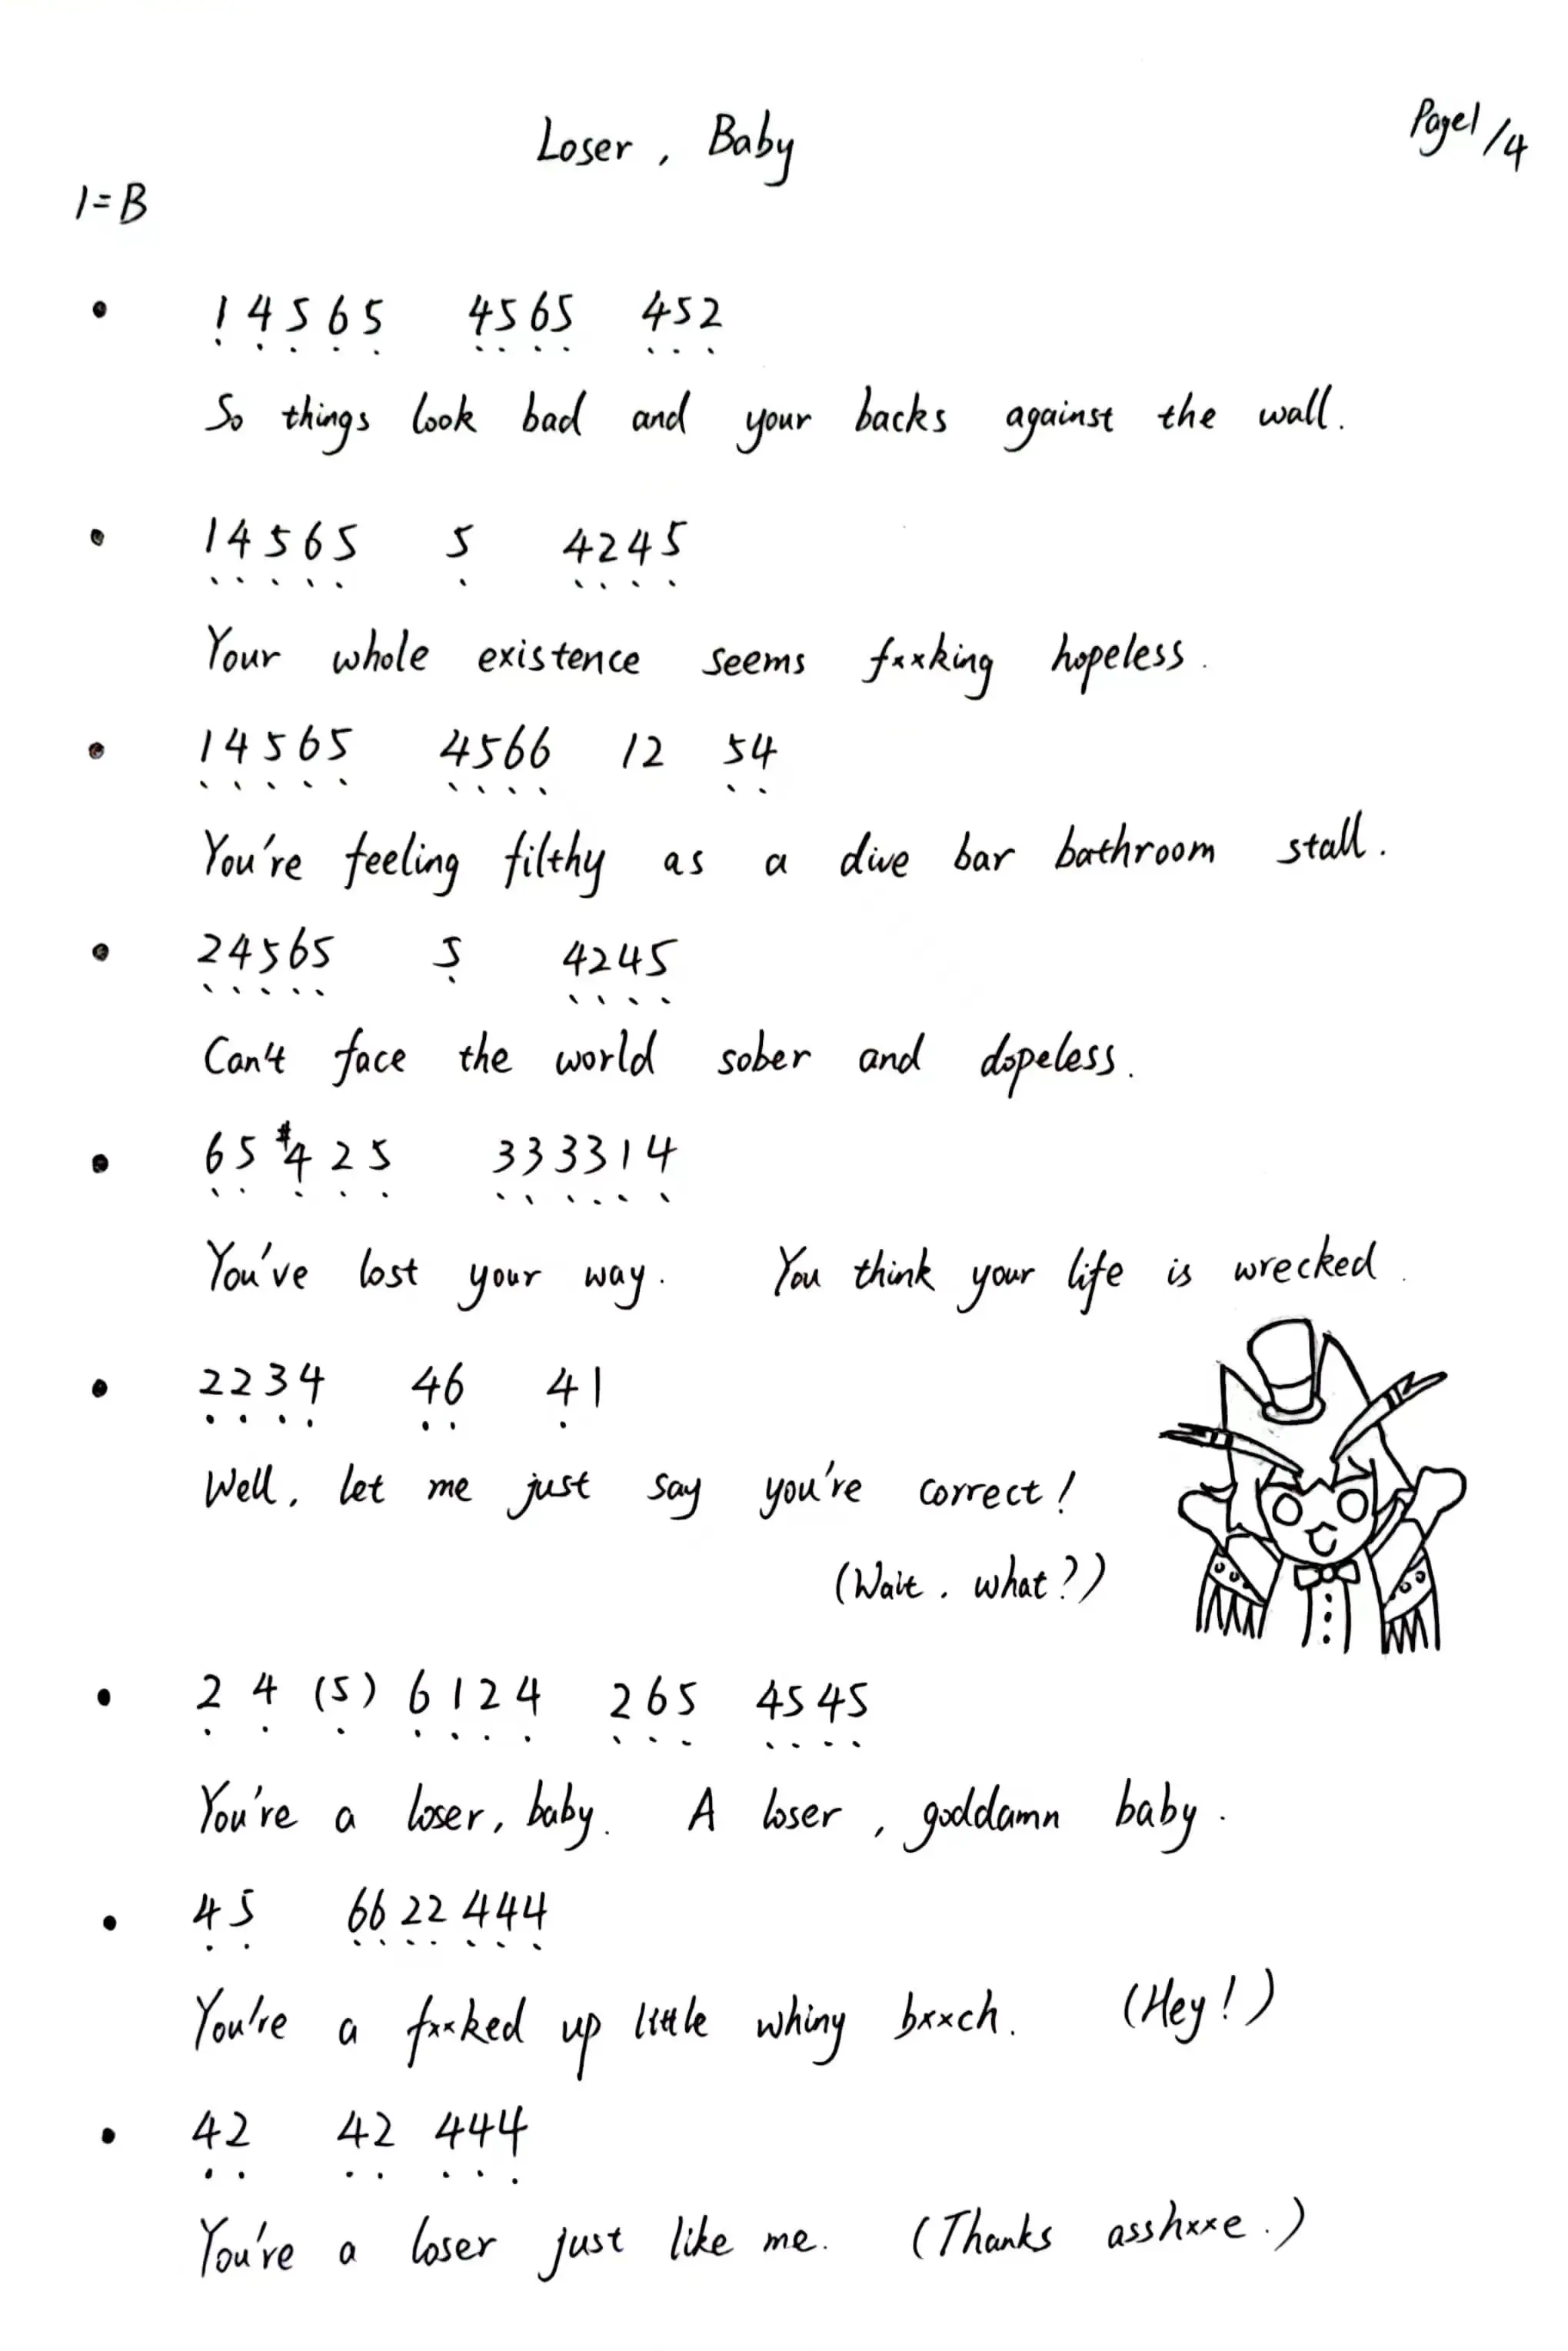 Loser, Baby
Page1/4
1=B
• 14565 4565 452
So things look bad and your backs against the wall.
• 14565 5 4245
Your whole existence seems fxxking hopeless.
• 14565 4566 12 54
You're feeling filthy as a dive bar bathroom stall.
• 24565 5 4245
Can't face the world sober and dopeless.
• 65#425 333314
You've lost your way. You think your life is wrecked.
• 2234 46 41
Well, let me just say you're correct!
(Wait, what?)
• 2 4 (5) 6124 265 4545
You're a loser, baby. A loser, goddamn baby.
• 45 6622444
You're a fxxked up little whiny bxxch. (Hey!)
• 42 42 444
You're a loser just like me. (Thanks asshxxe.)